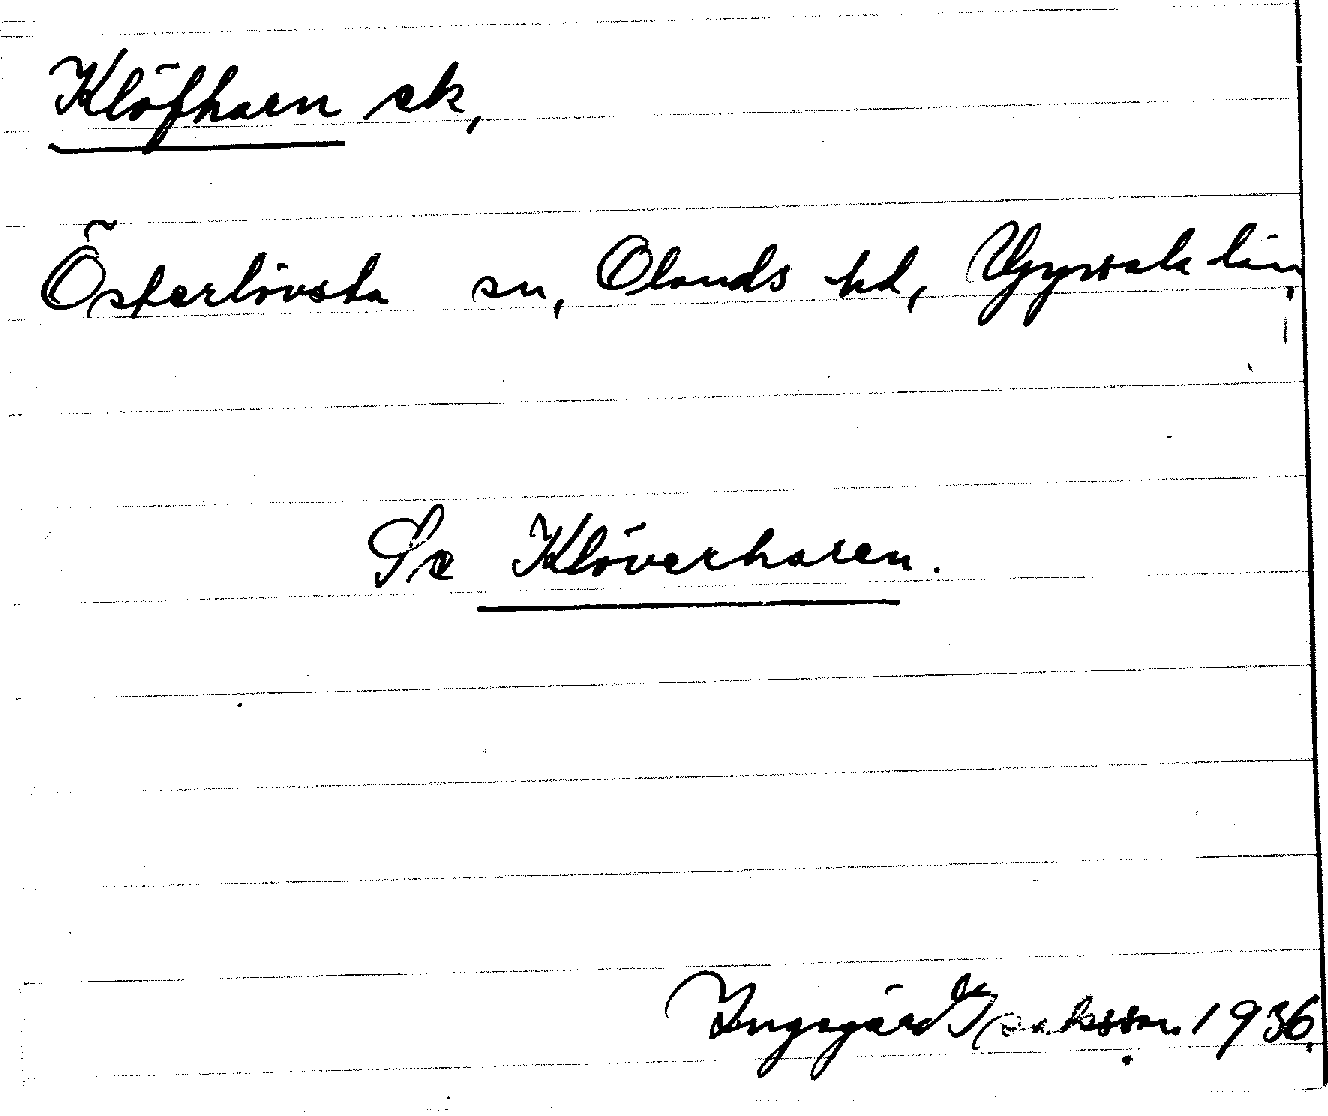 Klöfharn sk,
Österlövsta sn, Olands hd, Uppsala län,
Se Klöverharen.
Ingegärd Isaksson 1936.